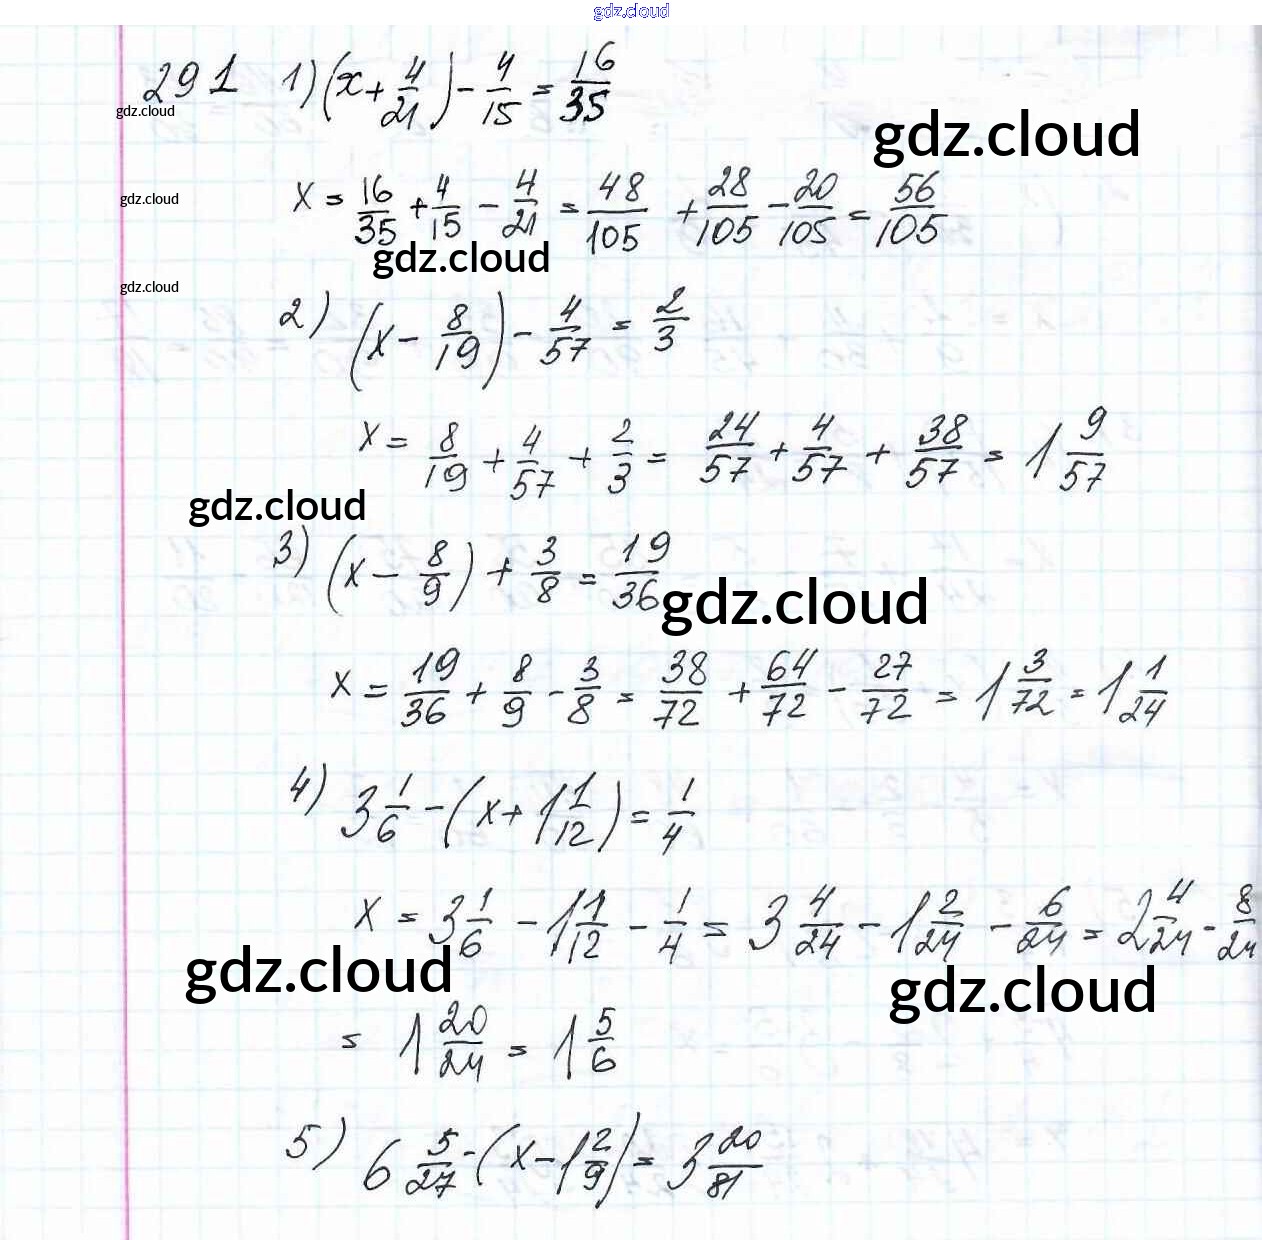 gdz.cloud
291 1) (x + 4/21) - 4/15 = 16/35
gdz.cloud
gdz.cloud
x = 16/35 + 4/15 - 4/21 = 48/105 + 28/105 - 20/105 = 56/105
gdz.cloud
gdz.cloud
gdz.cloud
2) (x - 8/19) - 4/57 = 2/3
x = 8/19 + 4/57 + 2/3 = 24/57 + 4/57 + 38/57 = 1 9/57
gdz.cloud
3) (x - 8/9) + 3/8 = 19/36
gdz.cloud
x = 19/36 + 8/9 - 3/8 = 38/72 + 64/72 - 27/72 = 1 3/72 = 1 1/24
4) 3 1/6 - (x + 1 1/12) = 1/4
x = 3 1/6 - 1 1/12 - 1/4 = 3 4/24 - 1 2/24 - 6/24 = 2 4/24 - 8/24
gdz.cloud
gdz.cloud
= 1 20/24 = 1 5/6
5) 6 5/27 - (x - 1 2/9) = 3 20/81